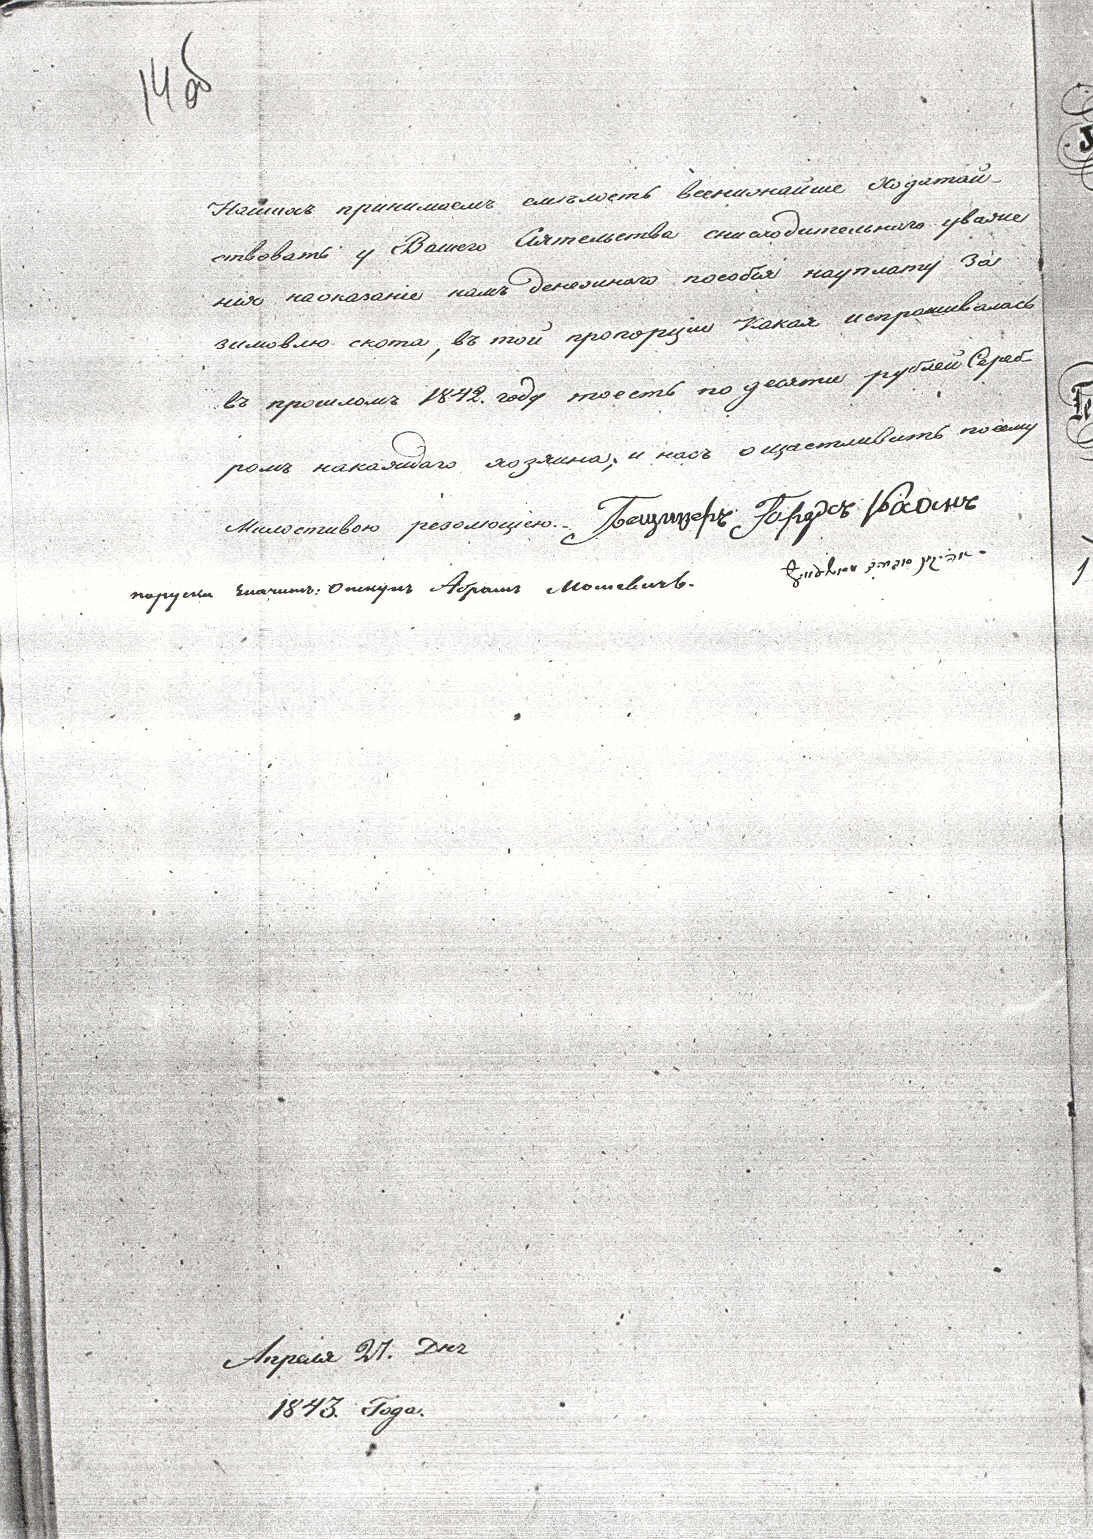 14 об
Нашихъ принимаемъ смѣлость всенижайше Ходатай-
ствовать у Вашего Сіятельства снисходительнаго уваже
нія наоказаніе намъ денежнаго пособія науплату За
зимовлю скота, въ той пропорціи Какая испрашивалась
въ прошломъ 1842. году тоесть по десяти рублей Сереб-
ромъ накаждаго хозяина, и насъ ощастливить посему
Милостивою резолюціею.-
поруски значитъ: Абрамъ Мошевичъ.
Апреля 27. Дня
1843. Года.